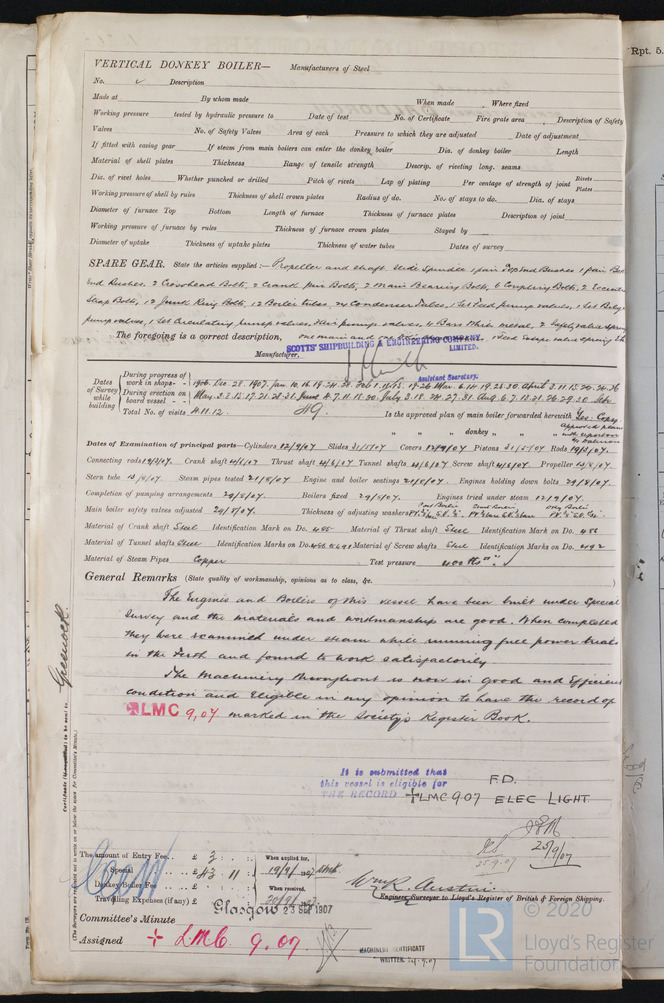 Rpt. 5.
VERTICAL DONKEY BOILER— Manufacturers of Steel
No. Description
Made at By whom made When made Where fixed
Working pressure tested by hydraulic pressure to Date of test No. of Certificate Fire grate area Description of Safety
Valves No. of Safety Valves Area of each Pressure to which they are adjusted Date of adjustment
If fitted with casing gear If steam from main boilers can enter the donkey boiler Dia. of donkey boiler Length
Material of shell plates Thickness Range of tensile strength Descrip. of riveting long. seams
Dia. of rivet holes Whether punched or drilled Pitch of rivets Lap of plating Per centage of strength of joint Rivets Plates
Working pressure of shell by rules Thickness of shell crown plates Radius of do. No. of stays to do. Dia. of stays
Diameter of furnace Top Bottom Length of furnace Thickness of furnace plates Description of joint
Working pressure of furnace by rules Thickness of furnace crown plates Stayed by
Diameter of uptake Thickness of uptake plates Thickness of water tubes Dates of survey
SPARE GEAR. State the articles supplied:— Propeller and shaft slide spindle 1 pair Top End Bushes 1 pair
End Bushes, 2 Crosshead Bolts, 2 Crank pin Bolts, 2 Main Bearing Bolts, 6 Coupling Bolts, 2 Eccentric
Strap Bolts, 12 Junk Ring Bolts, 12 Boiler tubes, 24 Condenser Tubes, 1 Set Feed pump valves, 1 Set Bilge
pump valves, 1 Set Circulating pump valves, 4 Bars thin metal, 2 Safety valve springs
The foregoing is a correct description,
SCOTTS' SHIPBUILDING & ENGINEERING COMPANY LIMITED.
Manufacturer.
Assistant Secretary.
Dates of Survey while building
During progress of work in shops - - 1906. Dec. 28. 1907. Jan 10. 16. 19. 24. 28. Feb 1. 11. 15. 19. 26 Mar. 6. 14. 19. 25. 30. April 3. 11. 15. 20. 24. 26
During erection on board vessel - - May. 2. 3. 15. 17. 21. 28. 31 June 4. 7. 11. 18. 20. July 3. 18. 24. 27. 31 Aug. 6. 7. 13. 21. 26. 29. 30. Sep.
Total No. of visits 4. 11. 12. 49. Is the approved plan of main boiler forwarded herewith See Copy
" " " donkey " " "
Dates of Examination of principal parts—Cylinders 12/9/07 Slides 31/5/07 Covers 12/9/07 Pistons 31/5/07 Rods 19/3/07.
Connecting rods 19/3/07. Crank shaft 4/6/07 Thrust shaft 4/6/07 Tunnel shafts 4/6/07 Screw shaft 4/6/07 Propeller 13/8/07
Stern tube 13/8/07 Steam pipes tested 21/8/07 Engine and boiler seatings 20/5/07. Engines holding down bolts 29/8/07.
Completion of pumping arrangements 29/8/07. Boilers fixed 29/8/07. Engines tried under steam 12/9/07.
Main boiler safety valves adjusted 29/8/07. Thickness of adjusting washers
Material of Crank shaft Steel Identification Mark on Do. 485 Material of Thrust shaft Steel Identification Mark on Do. 486
Material of Tunnel shafts Steel Identification Marks on Do. Material of Screw shafts Steel Identification Marks on Do. 492
Material of Steam Pipes Copper Test pressure 400 lbs □".
General Remarks (State quality of workmanship, opinions as to class, &c. )
The Engines and Boilers of this vessel have been built under Special
Survey and the materials and workmanship are good. When completed
they were examined under steam while running full power trials
in the Firth and found to work satisfactorily
The Machinery throughout is now in good and Efficient
condition and Eligible in my opinion to have the record of
✠LMC 9,07 marked in the Society's Register Book.
It is submitted that
this vessel is eligible for
THE RECORD ✠LMC 9 07 F.D. ELEC LIGHT.
25/9/07
25.9.07
Greenock
Certificate (if required) to be sent to
The amount of Entry Fee.. £ 3 : : When applied for.
Special .. £ 43 : 11 : 19/9/1907
Donkey Boiler Fee .. £ : : When received.
Travelling Expenses (if any) £ : : 20/9/1907
Wm R. Austin.
Engineer Surveyor to Lloyd's Register of British & Foreign Shipping.
Glasgow 23 SEP 1907
Committee's Minute
Assigned + LMC. 9.07
MACHINERY CERTIFICATE
WRITTEN 24.9.07
LR
© 2020
Lloyd's Register
Foundation